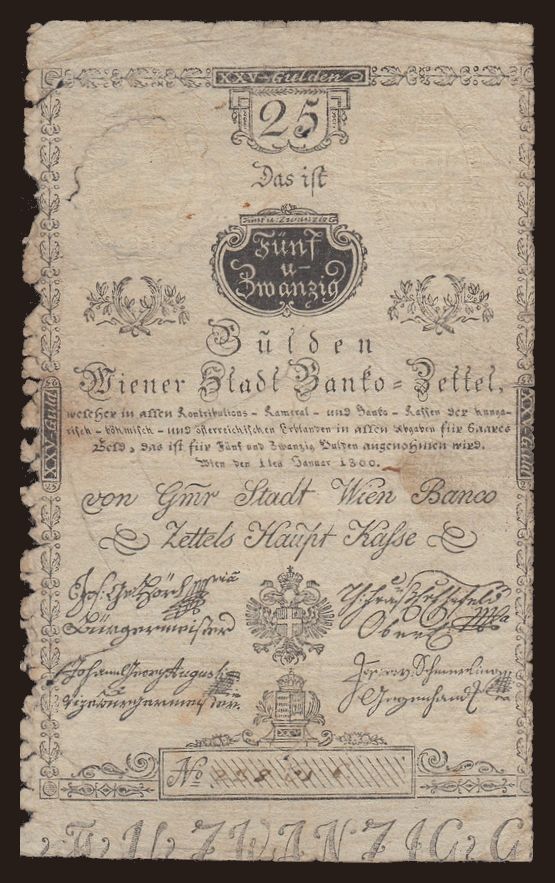 XXV-Gulden
25
Das ist
Fünf u: Zwanzig
Fünf
u
Zwanzig
Gulden
Wiener Stadt Banko-Zettel,
welcher in allen Kontributions- Kameral- und Banko- Kassen der hunga-
risch- böhmisch- und österreichischen Erblanden in allen Abgaben für baares
Geld, das ist für Fünf und Zwanzig Gulden angenohmen wird.
Wien den 1ten Januar 1800.
XXV-Guld
XXV-Guld
von Gmr Stadt Wien Banco
Zettels Haupt Kasse
Bürgermeister
Johann Georg Augusti
Vizebürgermeister
No
ZWANZIG G